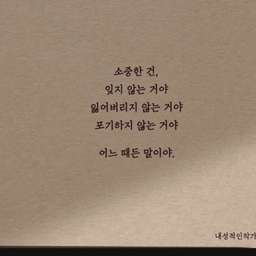 소중한 건,
잊지 않는 거야
잃어버리지 않는 거야
포기하지 않는 거야
어느 때든 말이야.
내성적인작가